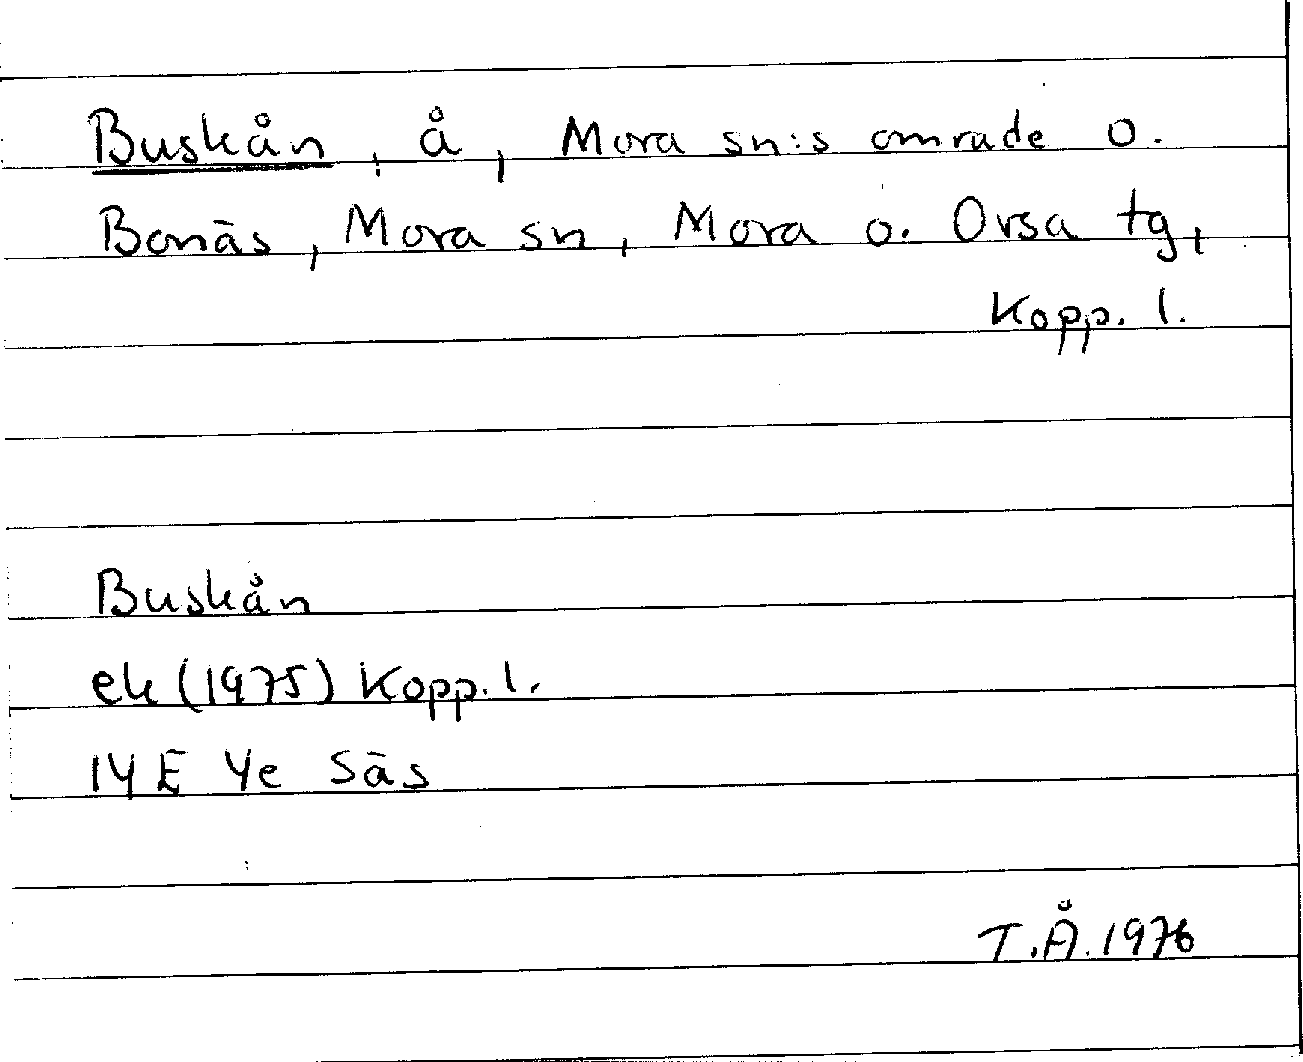 Buskån, å, Mora sn:s område o.
Bonäs, Mora sn, Mora o. Orsa tg,
Kopp. l.
Buskån
ek (1975) Kopp. l.
14 E 4e Säs
T.Å. 1976